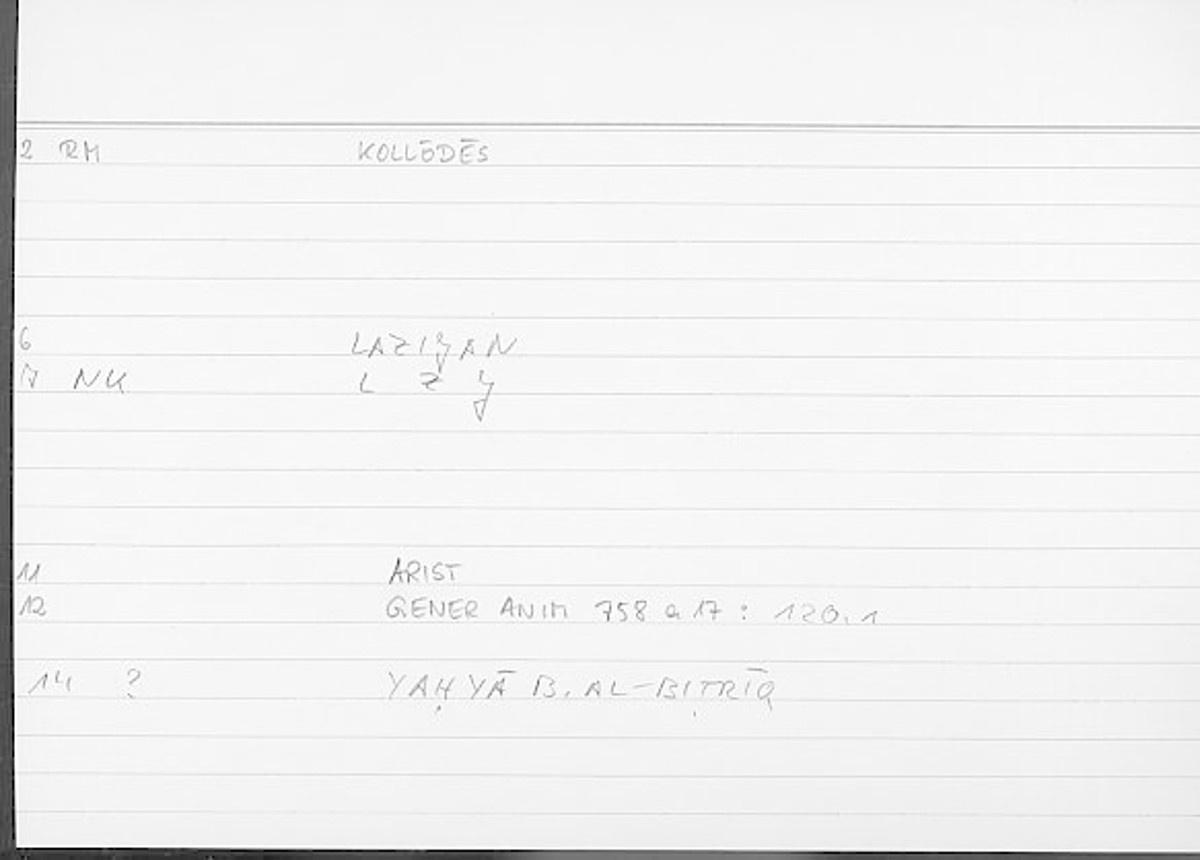 2 RM KOLLŌDĒS
6 LAZIǦAN
7 NK L Z Ǧ
11 ARIST
12 GENER ANIM 758 a 17 : 120.1
14 ? YAḤYĀ B. AL-BIṬRĪQ